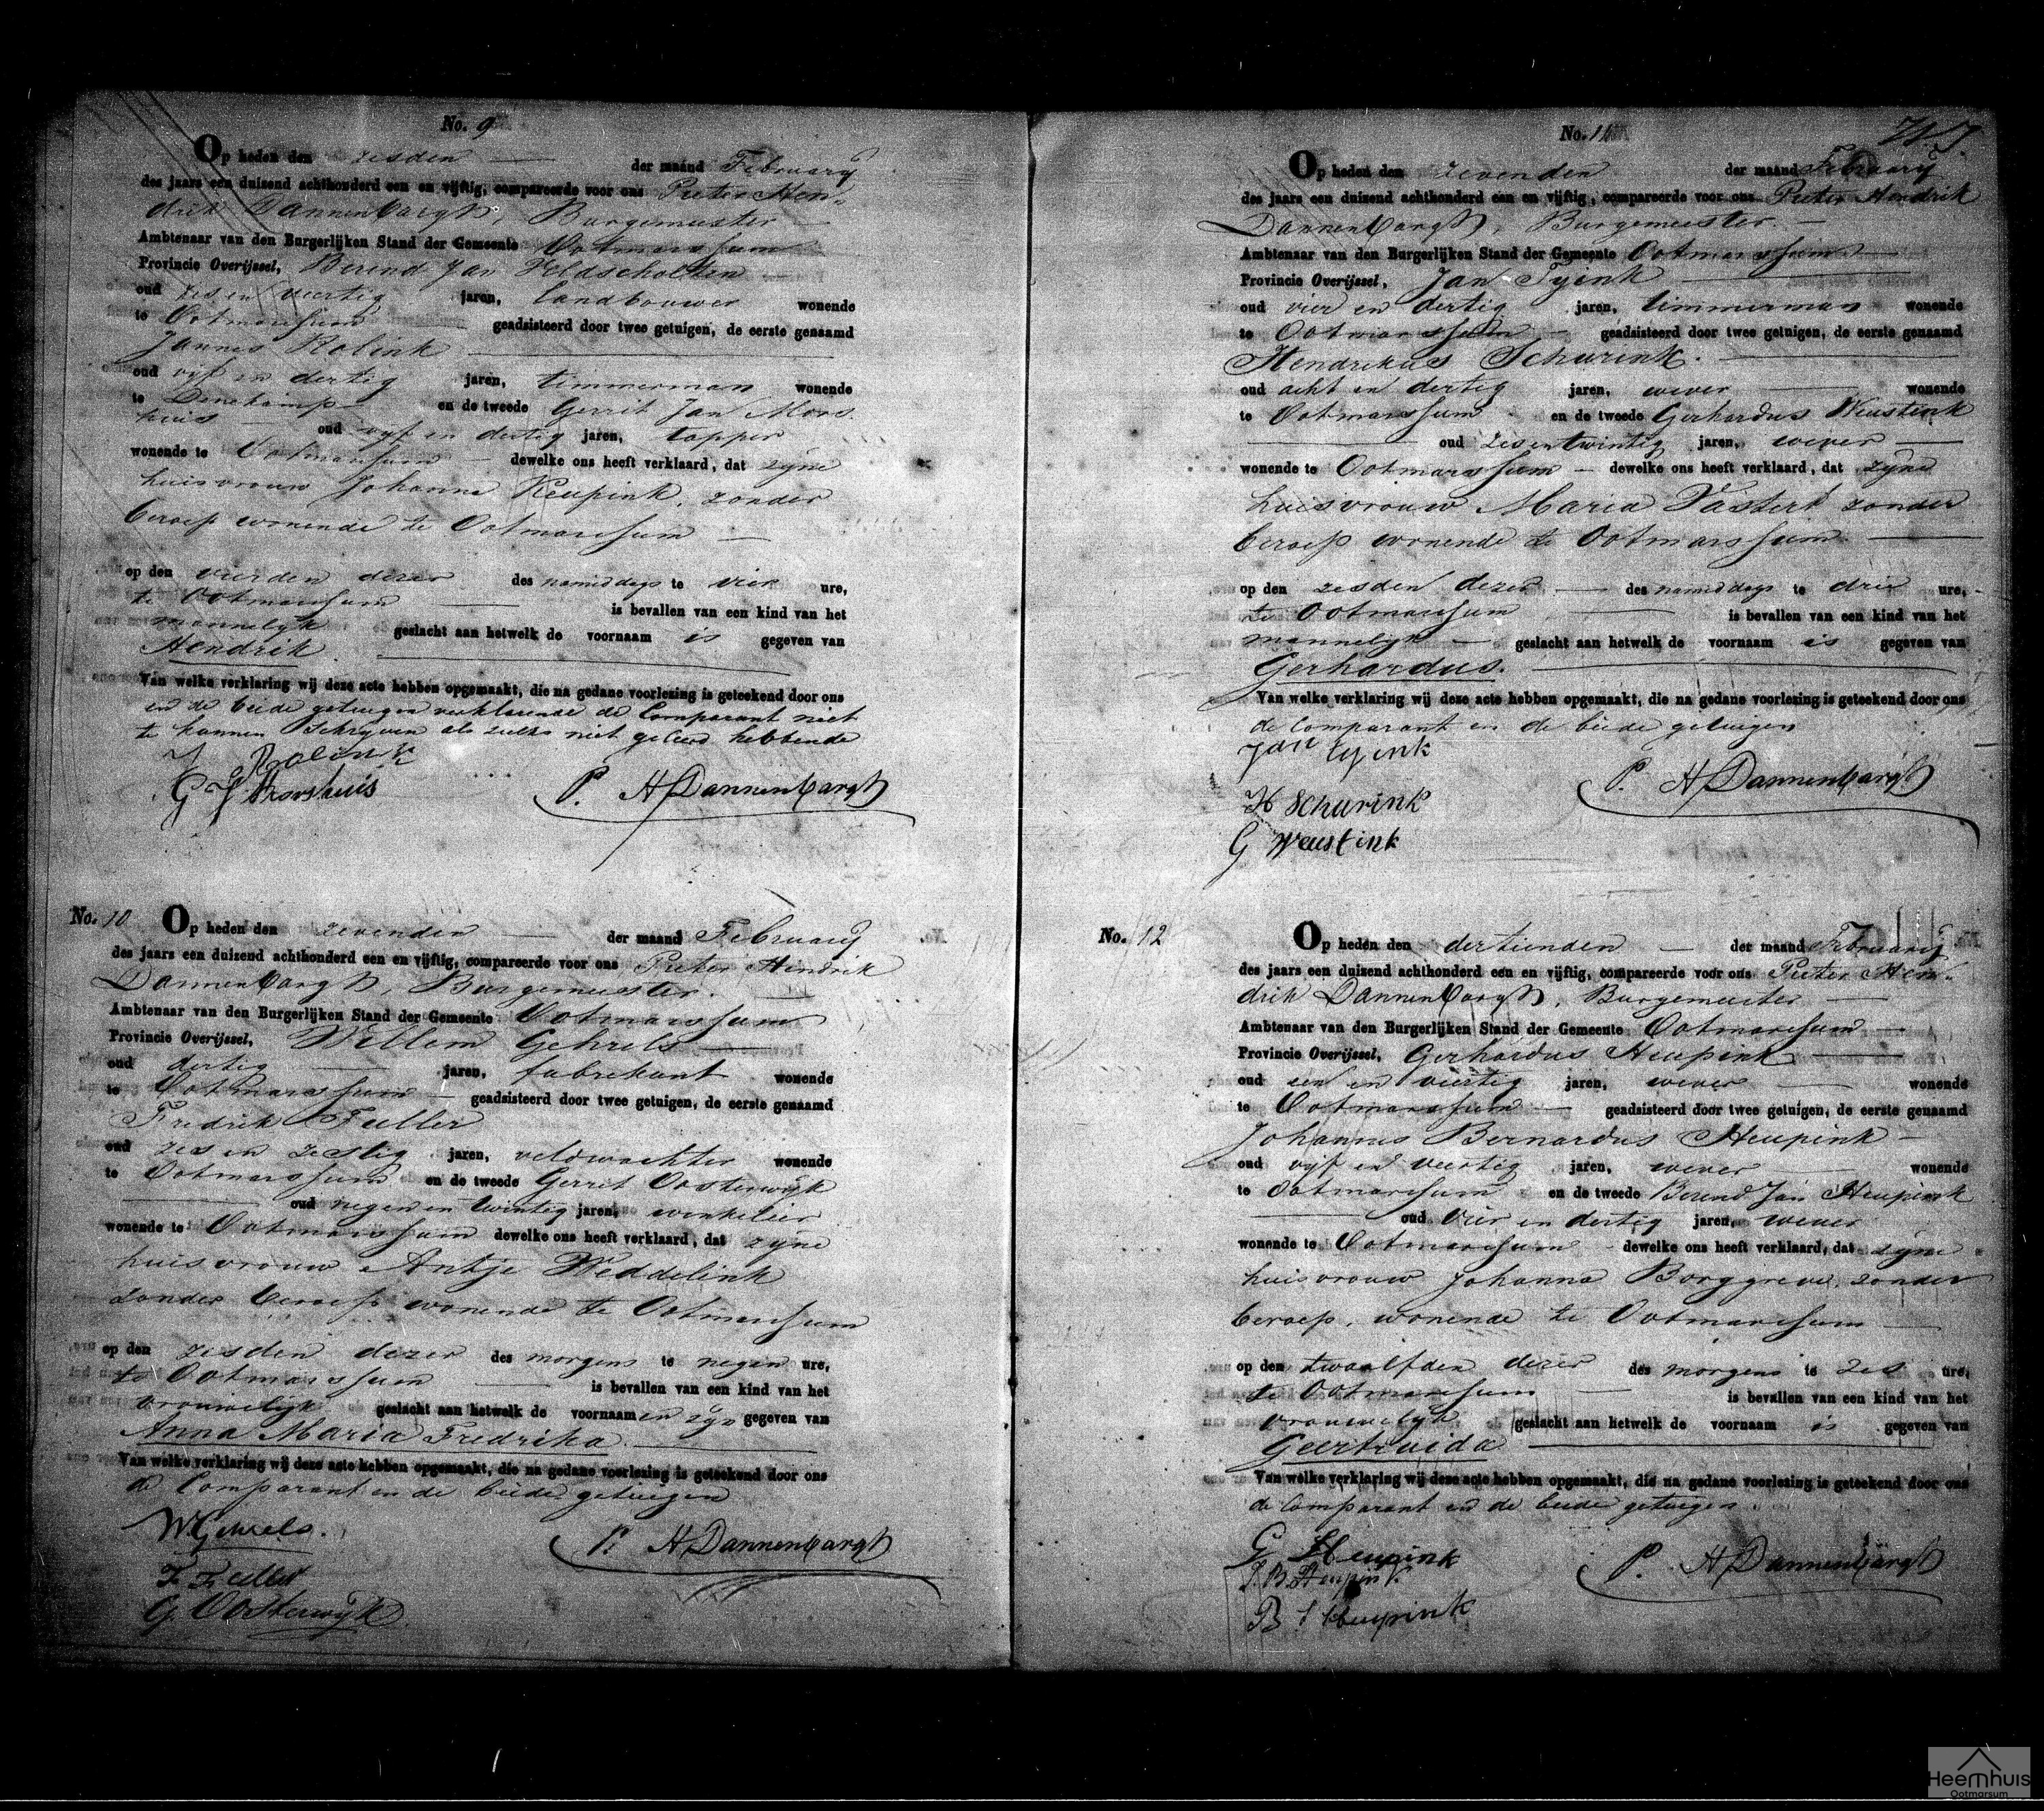 No. 9
Op heden den zesden der maand February
des jaars een duizend achthonderd een en vijftig, compareerde voor ons Pieter Hen-
drik Dannenbargh, Burgemeester
Ambtenaar van den Burgerlijken Stand der Gemeente Ootmarssum
Provincie Overijssel, Berend Jan Veldscholten
oud zes en veertig jaren, landbouwer wonende
te Ootmarssum geadsisteerd door twee getuigen, de eerste genaamd
Jannes Rolink
oud vyf en dertig jaren, timmerman wonende
te Denekamp en de tweede Gerrit Jan Mors
huis oud vyf en dertig jaren, tapper
wonende te Ootmarssum dewelke ons heeft verklaard, dat zyne
huisvrouw Johanna Reupink, zonder
beroep wonende te Ootmarssum
op den vierden dezer des namiddags te vier ure,
te Ootmarssum is bevallen van een kind van het
mannelyk geslacht aan hetwelk de voornaam is gegeven van
Hendrik
Van welke verklaring wij deze acte hebben opgemaakt, die na gedane voorlezing is geteekend door ons
en de beide getuigen verklarende de Comparant niet
te kunnen Schryven als zulks niet geleerd hebbende
J Rolink
G J Morshuis P. H Dannenbargh
No. 10 Op heden den zevenden der maand February
des jaars een duizend achthonderd een en vijftig, compareerde voor ons Pieter Hendrik
Dannenbargh, Burgemeester.
Ambtenaar van den Burgerlijken Stand der Gemeente Ootmarssum
Provincie Overijssel, Willem Gehrels
oud dertig jaren, fabrekant wonende
te Ootmarssum geadsisteerd door twee getuigen, de eerste genaamd
Fredrik Fuller
oud zes en zestig jaren, veldwachter wonende
te Ootmarssum en de tweede Gerrit Oosterwyk
oud negen en twintig jaren, winkelier
wonende te Ootmarssum dewelke ons heeft verklaard, dat zyne
huisvrouw Antje Weddelink
zonder beroep wonende te Ootmarssum
op den zesden dezer des morgens te negen ure,
te Ootmarssum is bevallen van een kind van het
vrouwelyk geslacht aan hetwelk de voornaamen zyn gegeven van
Anna Maria Fredrika
Van welke verklaring wij deze acte hebben opgemaakt, die na gedane voorlezing is geteekend door ons
de Comparant en de beide getuigen
W Gehrels.
F Fuller P. H Dannenbargh
G. Oosterwyk
No. 11
Op heden den zevenden der maand February
des jaars een duizend achthonderd een en vijftig, compareerde voor ons Pieter Hendrik
Dannenbargh, Burgemeester.
Ambtenaar van den Burgerlijken Stand der Gemeente Ootmarssum
Provincie Overijssel, Jan Tyink
oud vier en dertig jaren, timmerman wonende
te Ootmarssum geadsisteerd door twee getuigen, de eerste genaamd
Hendrikus Schurink.
oud acht en dertig jaren, wever wonende
te Ootmarssum en de tweede Gerhardus Weustink
oud zesentwintig jaren, wever
wonende te Ootmarssum dewelke ons heeft verklaard, dat zyne
huisvrouw Maria Vastert zonder
beroep wonende te Ootmarssum
op den zesden dezer des namiddags te drie ure,
te Ootmarssum is bevallen van een kind van het
mannelyk geslacht aan hetwelk de voornaam is gegeven van
Gerhardus.
Van welke verklaring wij deze acte hebben opgemaakt, die na gedane voorlezing is geteekend door ons
de Comparant en de beide getuigen
Jan Tyink
H Schurink P. H Dannenbargh
G Weustink
No. 12 Op heden den dertienden der maand February
des jaars een duizend achthonderd een en vijftig, compareerde voor ons Pieter Hen-
drik Dannenbargh, Burgemeester
Ambtenaar van den Burgerlijken Stand der Gemeente Ootmarssum
Provincie Overijssel, Gerhardus Heupink
oud een en veertig jaren, wever wonende
te Ootmarssum geadsisteerd door twee getuigen, de eerste genaamd
Johannes Bernardus Heupink
oud vyf en veertig jaren, wever wonende
te Ootmarssum en de tweede Berend Jan Heupink
oud vier en dertig jaren, wever
wonende te Ootmarssum dewelke ons heeft verklaard, dat zyne
huisvrouw Johanna Borggreve, zonder
beroep, wonende te Ootmarssum
op den twaalfden dezer des morgens te zes ure,
te Ootmarssum is bevallen van een kind van het
vrouwelyk geslacht aan hetwelk de voornaam is gegeven van
Geertruida
Van welke verklaring wij deze acte hebben opgemaakt, die na gedane voorlezing is geteekend door ons
de Comparant en de beide getuigen
G Heupink
J. B. Heupink P. H Dannenbargh
B J Heupink
Heemhuis
Ootmarsum